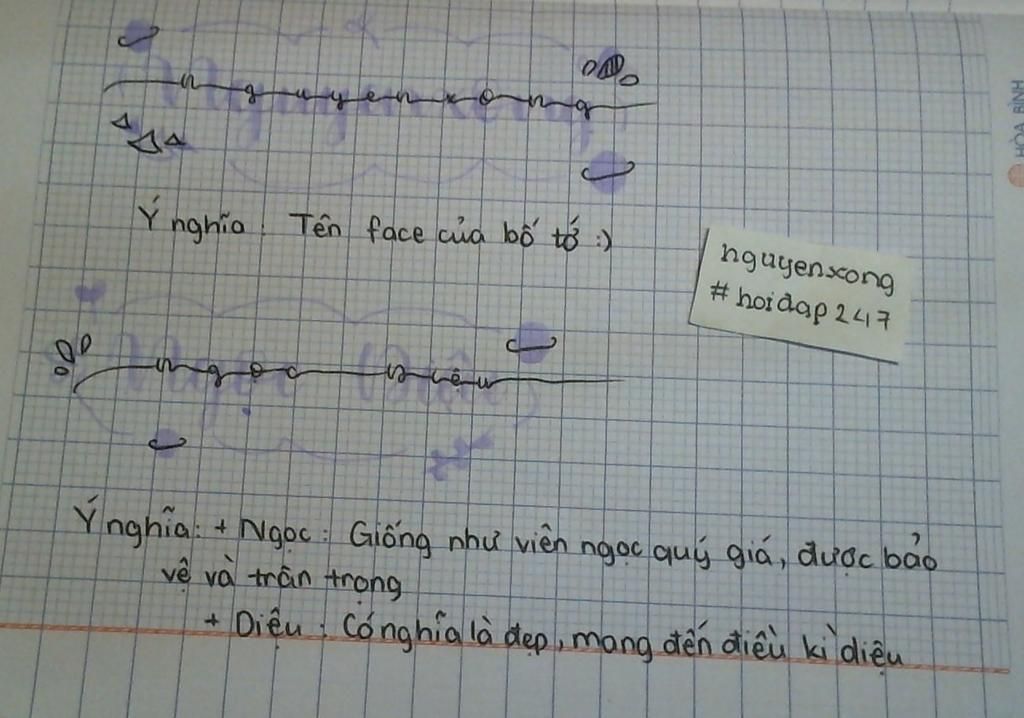 nguyenxong
Ý nghĩa: Tên face của bố tớ :)
nguyenxong
#hoidap247
HÒA BÌNH
ngọc diệu
Ý nghĩa: + Ngọc: Giống như viên ngọc quý giá, được bảo
vệ và trân trọng
+ Diệu: Có nghĩa là đẹp, mang đến điều kì diệu